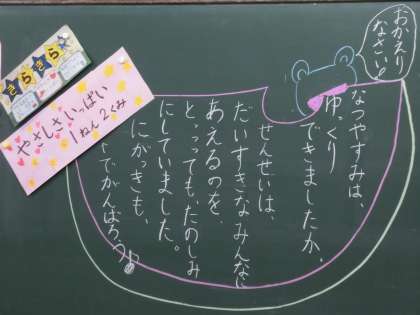 おかえり
なさい!
なつやすみは、
ゆっくり
できましたか。
せんせいは、
だいすきなみんなに
あえるのを、
とってもたのしみ
にしていました。
にがっきも、
でがんばろう。
きらきら
やさしさいっぱい
1ねん2くみ